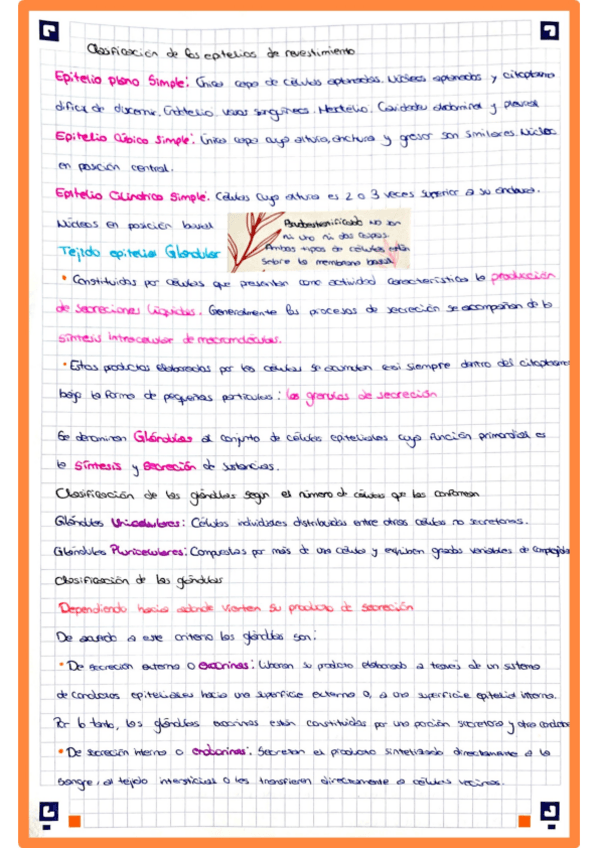 Clasificación de los epitelios de revestimiento
Epitelio plano Simple: Única capa de células aplanadas. Núcleos aplanados y citoplasma
difícil de discernir. Endotelio. vasos sanguíneos. Mesotelio. Cavidades abdominal y pleural
Epitelio Cúbico Simple: Única capa cuya altura, anchura y grosor son similares. Núcleo
en posición central.
Epitelio Cilíndrico Simple: Células cuya altura es 2 o 3 veces superior a su anchura.
Núcleos en posición basal
Pseudoestratificado no son
ni uno ni dos capas.
Ambos tipos de células están
sobre la membrana basal
Tejido epitelial Glandular
• Constituidas por células que presentan como actividad característica la producción
de secreciones líquidas. Generalmente los procesos de secreción se acompañan de la
síntesis intracelular de macromoléculas.
• Estos productos elaborados por las células se acumulan casi siempre dentro del citoplasma
bajo la forma de pequeñas partículas: los gránulos de secreción
Se denominan Glándulas al conjunto de células epiteliales cuya función primordial es
la Síntesis y Secreción de sustancias.
Clasificación de las glándulas según el número de células que las conforman
Glándulas Unicelulares: Células individuales distribuidas entre otras células no secretoras.
Glándulas Pluricelulares: Compuestas por más de una célula y exhiben grados variables de complejida
Clasificación de las glándulas
Dependiendo hacia adonde vierten su producto de secreción
De acuerdo a este criterio las glándulas son:
• De secreción externa o exocrinas: Liberan su producto elaborado a través de un sistema
de conductos epiteliales hacia una superficie externa o, a una superficie epitelial interna.
Por lo tanto, las glándulas exocrinas están constituidas por una porción secretora y otra
• De secreción interna o endocrinas: Secretan el producto sintetizado directamente a la
sangre, al tejido intersticial o los transfieren directamente a células vecinas.